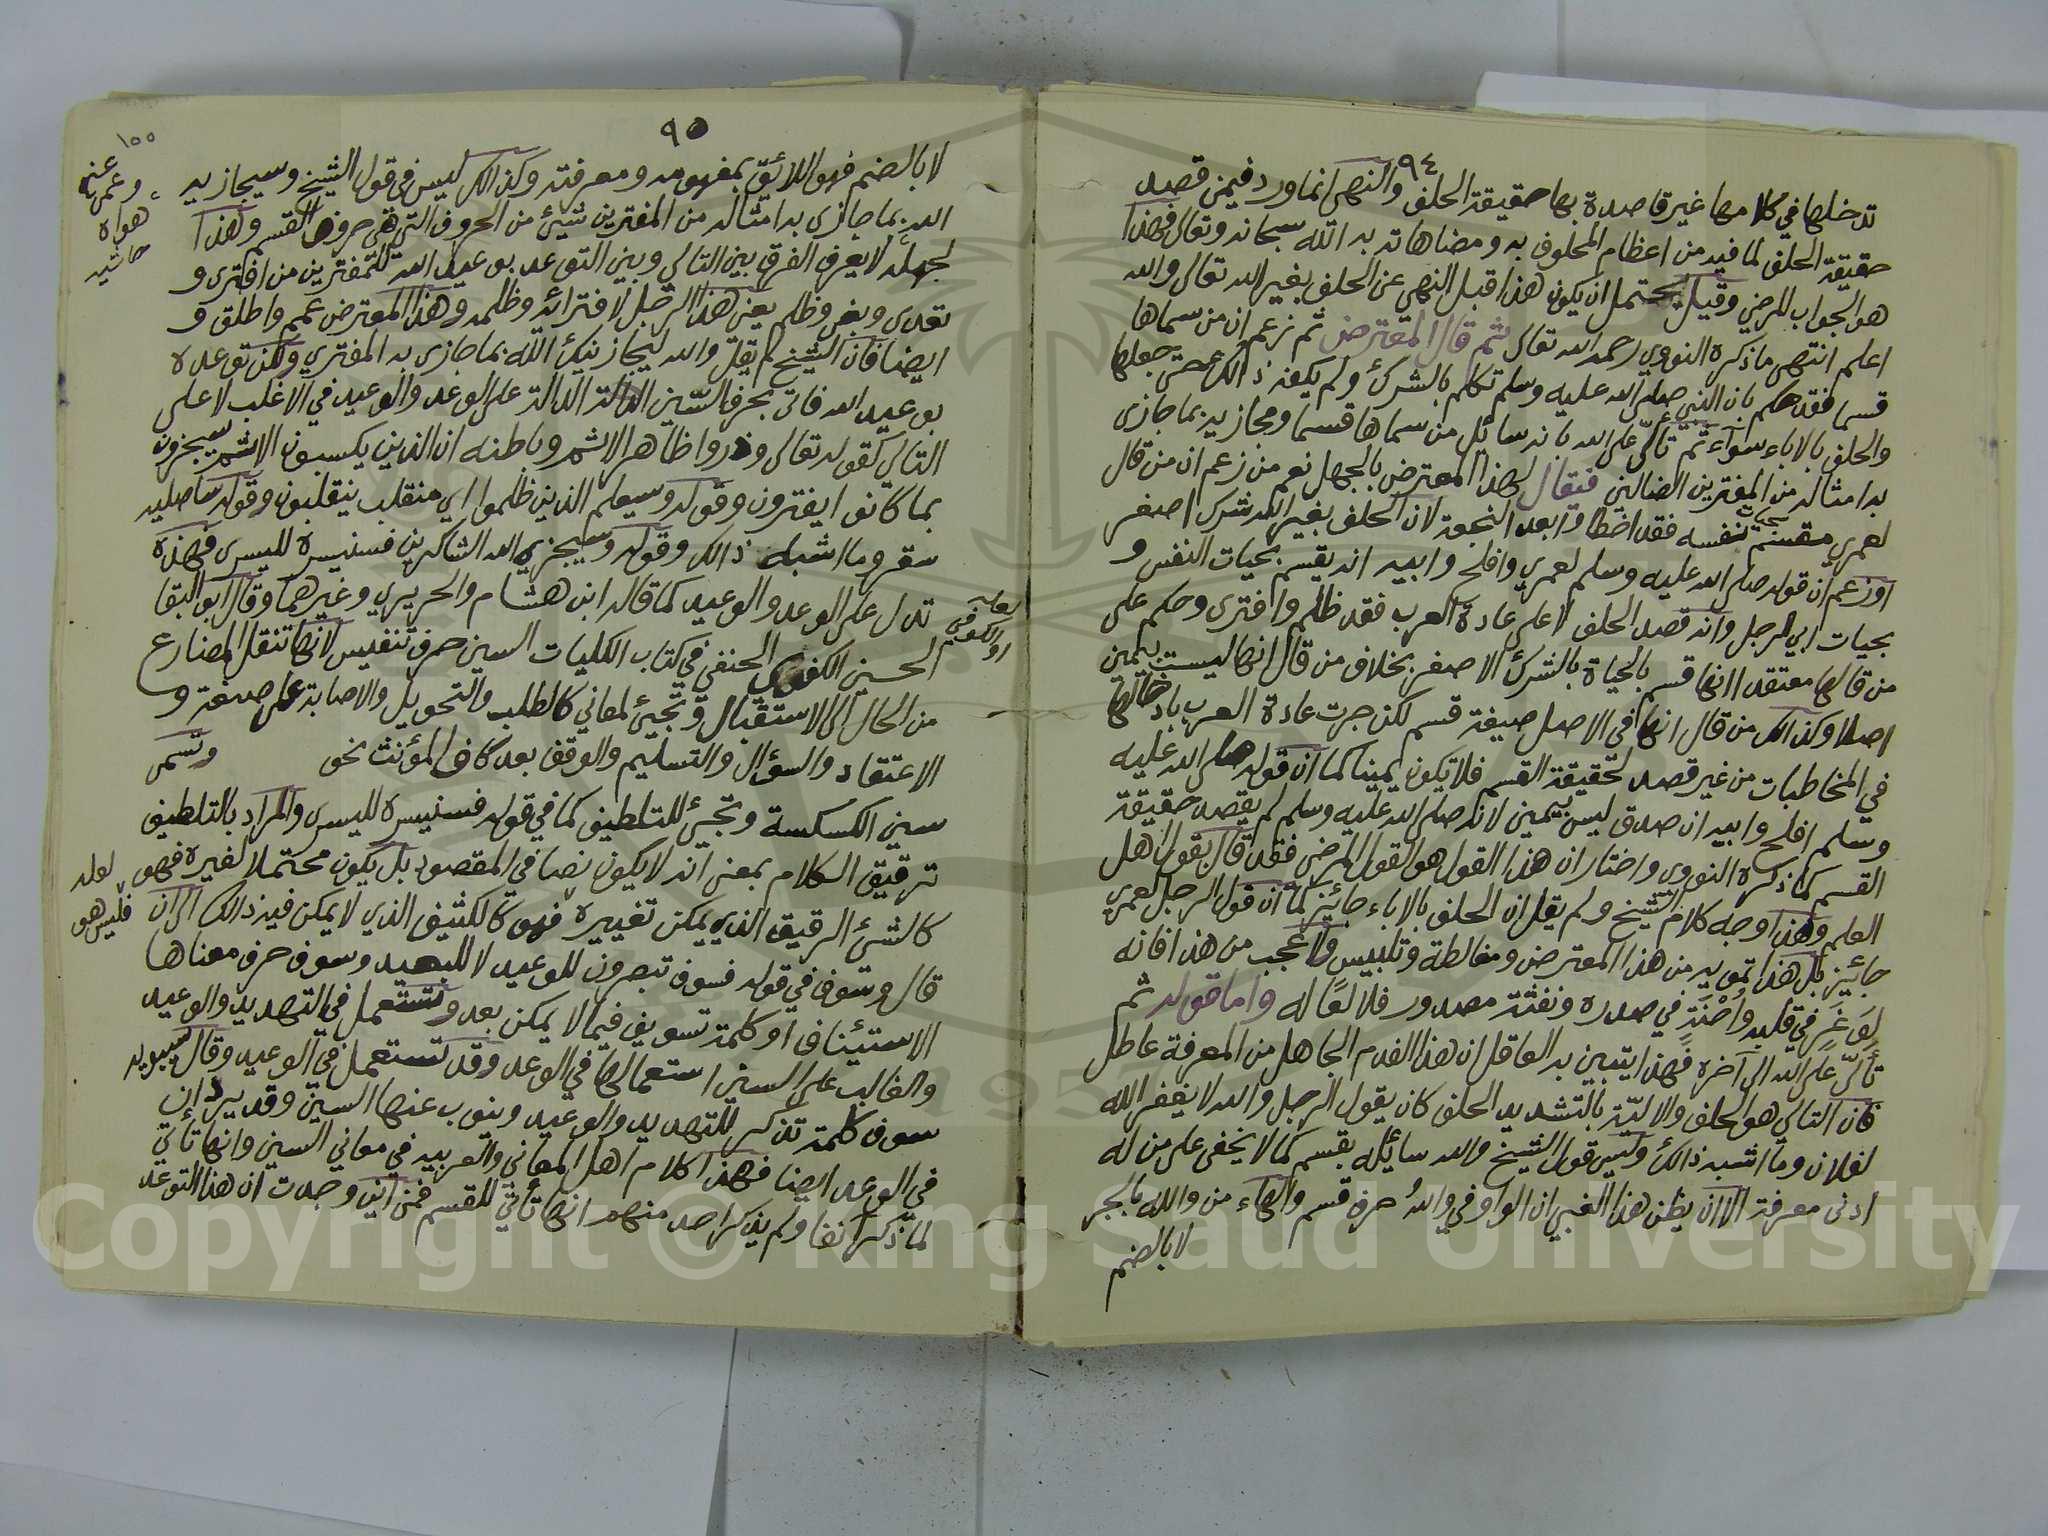 ٩٤
تدخلها في كلامها غير قاصدة بها حقيقة الحلف والنهي انما ورد فيمن قصد
حقيقة الحلف لما فيه من اعظام المحلوف به ومضاهاته به الله سبحانه وتعالى فهذا
هو الجواب المرضي وقيل يحتمل ان يكون هذا قبل النهي عن الحلف بغير الله تعالى والله
اعلم انتهى ما ذكره النووي رحمه الله تعالى ثم قال المعترض ثم زعم ان من سماها
قسما فقد حكم بان النبي صلى الله عليه وسلم تكلم بالشرك ولم يكفه ذالك حتى جعلها
والحلف بالاباء سواء ثم تألّى على الله بانه سائل من سماها قسما ومجازيه بما جازى
به امثاله من المفترين الضالين فنقال لهذا المعترض بالجهل نعم من زعم ان من قال
لعمري مقسم بنفسه فقد اخطا وابعد النجعة لان الحلف بغير الله شرك اصغر
او زعم ان قوله صلى الله عليه وسلم لعمري وافلح وابيه انه يقسم بحيات النفس و
بحيات ابي الرجل وانه قصد الحلف لا على عادة العرب فقد ظلم وافترى وحكم على
من قالها معتقدا انها قسم بالحياة بالشرك الاصغر بخلاف من قال انها ليست بيمين
اصلا وكذالك من قال انها في الاصل صيغة قسم لكن جرت عادة العرب بادخالها
في المخاطبات من غير قصد لحقيقة القسم فلا تكون يمينا كما ان قوله صلى الله عليه
وسلم افلح وابيه ان صدق ليس بيمين لانه صلى الله عليه وسلم لم يقصد حقيقة
القسم كما ذكره النووي واختار ان هذا القول هو القول المرضي فقد قال بقول اهل
العلم وهذا وجه كلام الشيخ ولم يقل ان الحلف بالاباء جائز كما ان قول الرجل لعمري
جائز بل هذا تمويه من هذا المعترض ومغالطة وتلبيس ولا عجب من هذا فانه
لوَغَرٍ في قلبه وإحْنَةٍ في صدره ونفثة مصدور فلا لعًا له واما قوله ثم
تألّى على الله الى آخره فهذا يتبين به العاقل ان هذا الفدم الجاهل من المعرفة عاطل
فان التالي هو الحلف والاليّة بالتشديد الحلف كان يقول الرجل والله لا يغفر الله
لفلان وما اشبه ذالك وليس قول الشيخ والله سائله بقسم كما لا يخفى على من له
ادنى معرفة الا ان يظن هذا الغبي ان الواو في واللهُ حرف قسم والهاء من والله بالجر
لا بالضم
٩٥
١٥٥
لا بالضم فهو اللائق بمفهومه ومعرفته وكذالك ليس في قول الشيخ وسيجازيه
الله بما جازى به امثاله من المفترين شيئ من الحروف التي هي حروف القسم وهذا
لجهله لا يعرف الفرق بين التالي وبين التوعد بوعيد الله للمفترين من افترى و
تعدى وبغى وظلم يعنى هذا الرجل لافترائه وظلمه وهذا المعترض عمم واطلق و
ايضا فان الشيخ لم يقل والله ليجازينك الله بما جازى به المفتري ولكن توعده
بوعيد الله فاتى بحرف السّين الدالة على الوعد والوعيد في الاغلب لا على
التالي كقوله تعالى وذروا ظاهر الاثم وباطنه ان الذين يكسبون الاثم سيجزون
بما كانوا يفترون وقوله وسيعلم الذين ظلموا اي منقلب ينقلبون وقوله ساصليه
سقر وما اشبه ذالك وقوله وسيجزي الله الشاكرين فسنيسره لليسرى فهذه
تدل على الوعد والوعيد كما قاله ابن هشام والحريري وغيرهما وقال ابو البقا
الحسين الكفوي الحنفي في كتاب الكليات السين حرف تنفيس لانها تنقل المضارع
من الحال الى الاستقبال وتجيئ لمعاني كالطلب والتحويل والاصابة على صيغة و
الاعتقاد والسؤال والتسليم والوقف بعد كاف المؤنث نحو وتسمى
سين الكسكسة وتجيئ للتلطيف كما في قوله فسنيسره لليسرى والمراد بالتلطيف
ترقيق الكلام بمعنى انه لا يكون نصا في المقصود بل يكون محتملا لغيره فهو
كالشيئ الرقيق الذي يمكن تغييره فهو كالكثيف الذي لا يمكن فيه ذالك الى ان
قال وسوف في قوله فسوف تبصرون للوعيد لا للبعيد وسوف حرف معناها
الاستئناف او كلمة تسويف فيما لا يمكن بعد وتستعمل في التهديد والوعيد
والغالب على السين استعمالها في الوعد وقد تستعمل في الوعيد وقال سيبويه
سوف كلمة تذكر للتهديد والوعيد وينوب عنها السين وقد يردان
في الوعد ايضا فهذا كلام اهل المعاني والعربيه في معاني السين وانها تاتي
لما ذكر آنفا ولم يذكر احد منهم انها تأتي للقسم فمن اين وجدت ان هذا التوعد
عنه
وعمى
هواه
حاشيه
لعله
او الكوفي
لعله
فليس هو
Copyright © King Saud University
1957